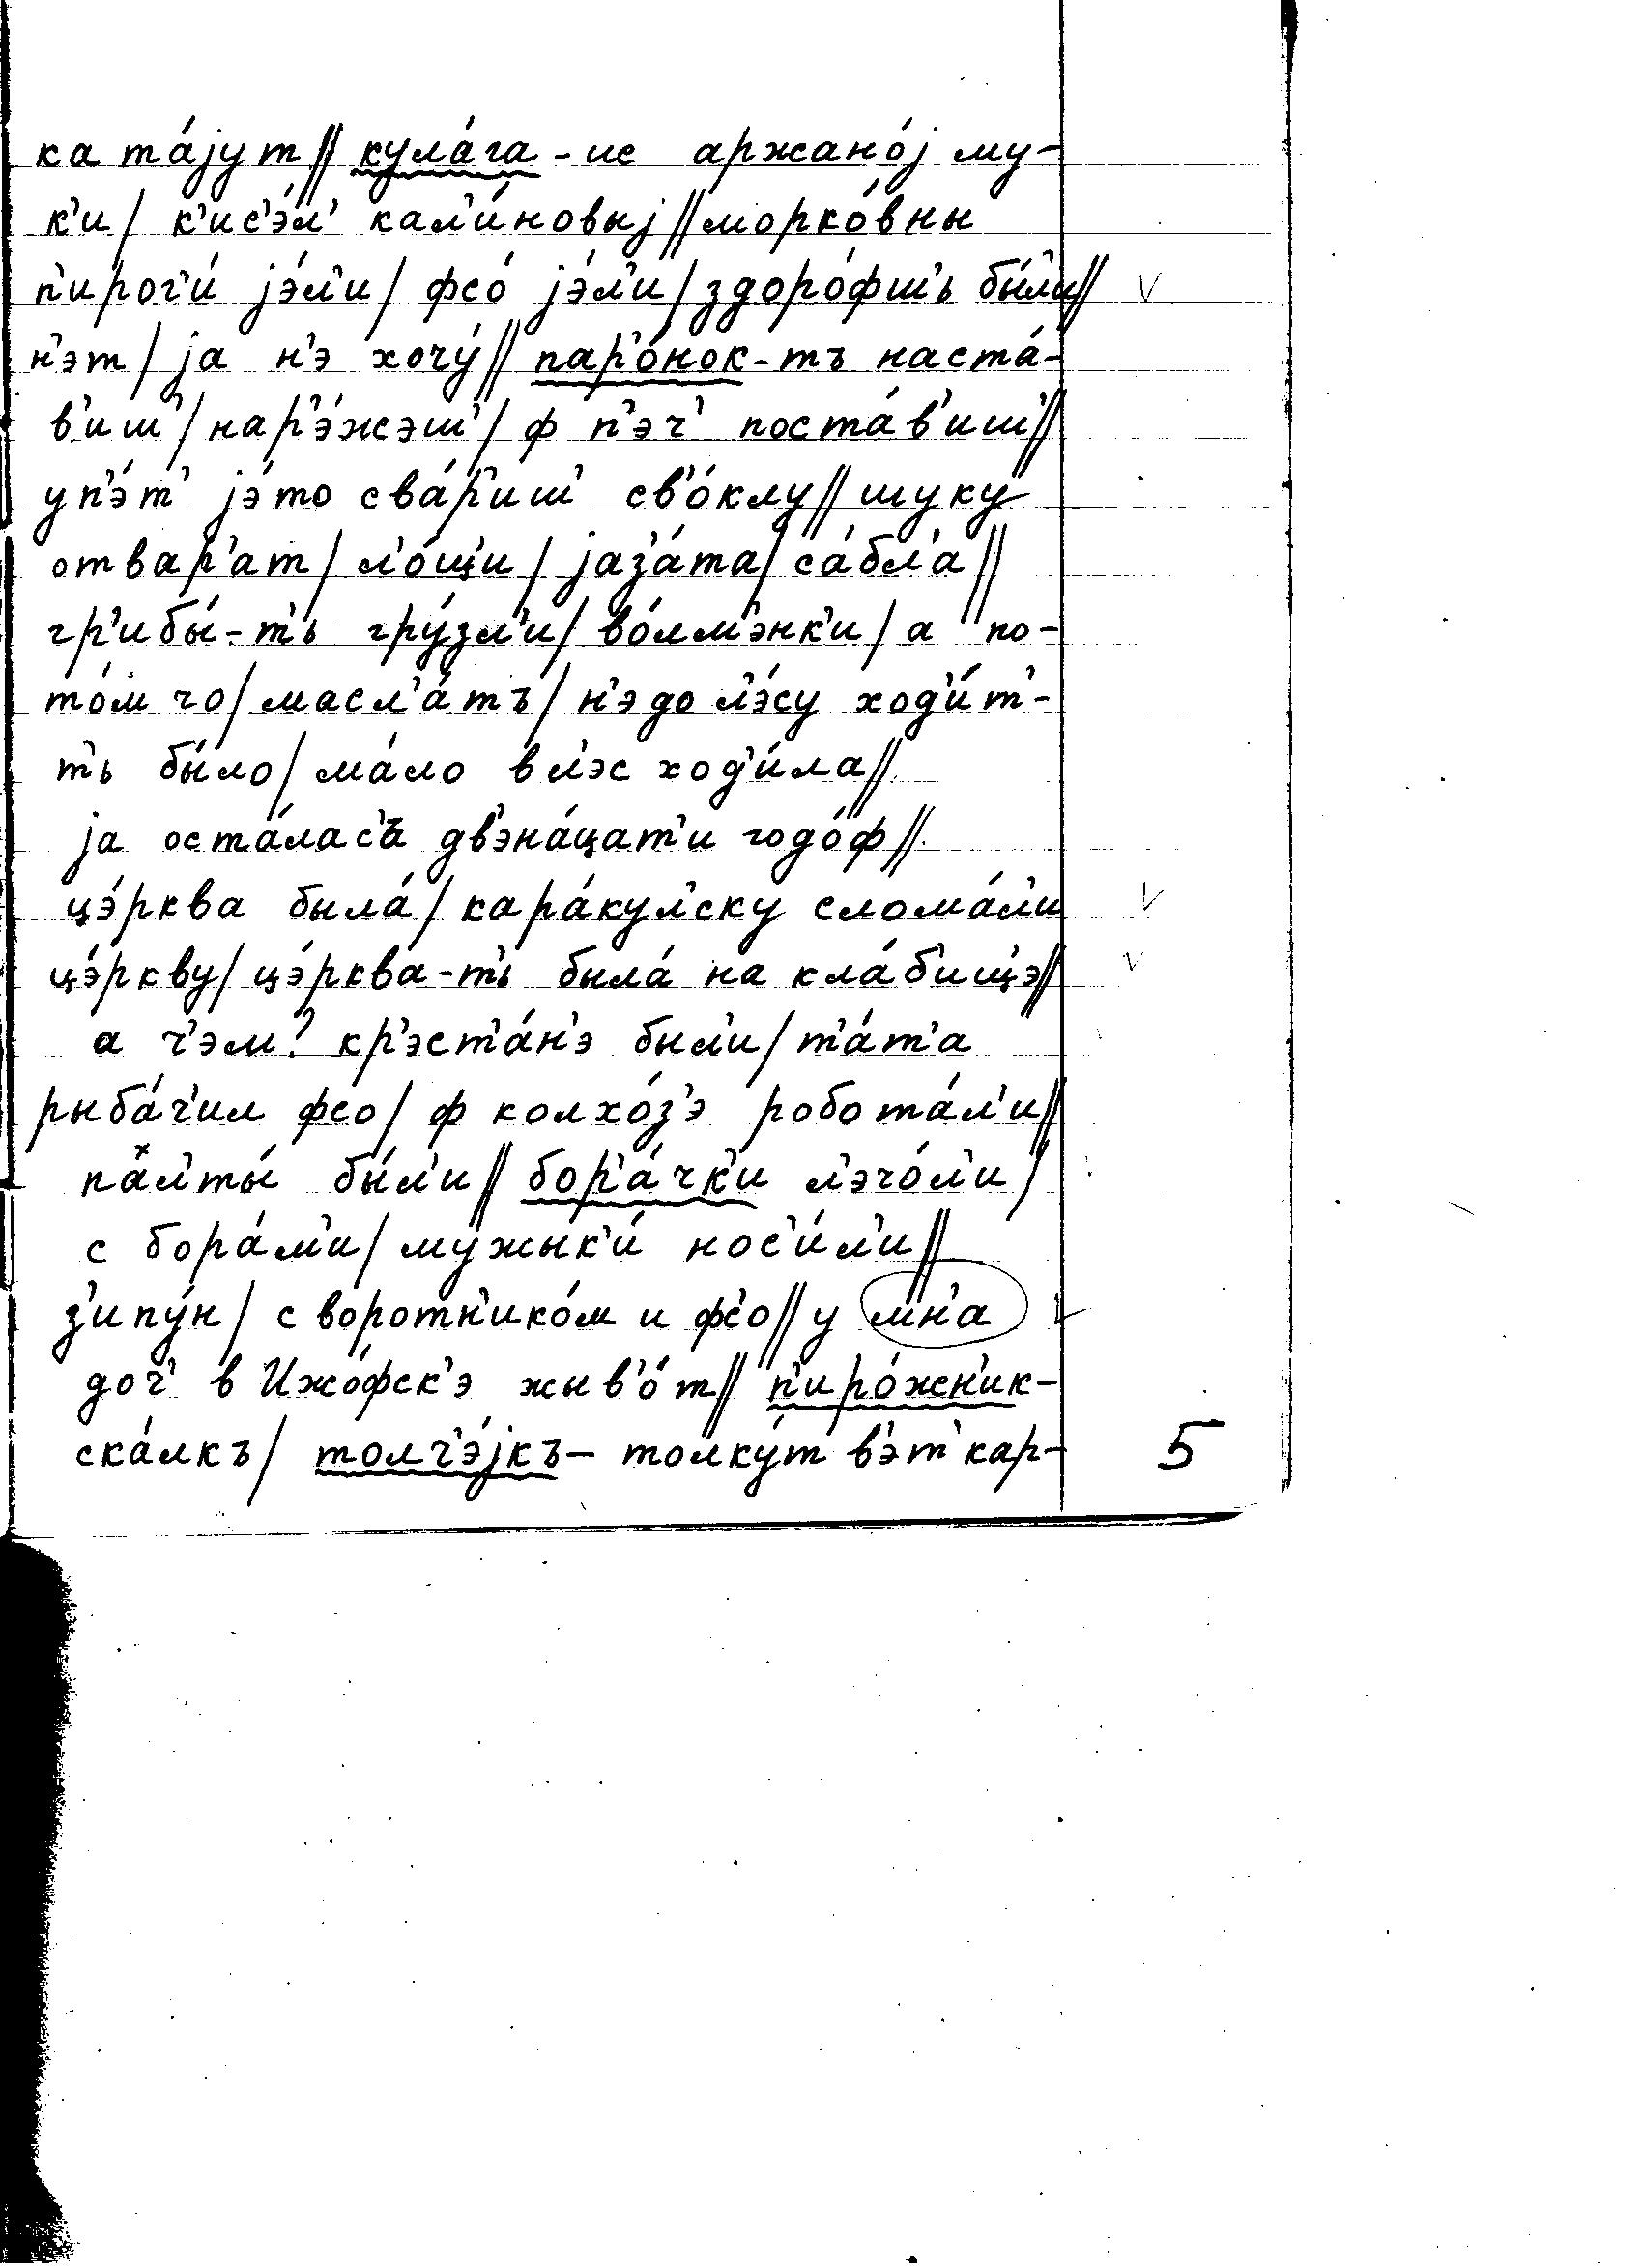 ката́jут// кула́га - ис аржано́j му-
к'и/ к'ис'э́л' кал'и́новыj// морко́вны
п'ирог'и́ jэ́л'и/ фсо́ jэ́л'и/ здоро́фш'ь бы́л'и// v
н'эт/ jа н'э хочу́// пар'о́нок-тъ наста́-
в'иш'/ нар'э́жэш'/ ф п'эч' поста́в'иш'//
уп'э́т' jэ́то сва́р'иш' св'о́клу// шуку
отвар'ат/ л'о́щ'и/ jаз'а́та/ са́бл'а//
гр'ибы́-т'ь гру́зл'и/ во́лм'энк'и/ а по-
то́м чо/ масл'а́тъ/ н'э до л'э́су ход'и́т'-
т'ь бы́ло/ ма́ло в л'эс ход'и́ла//
jа оста́лас'а дв'эна́цат'и годо́ф//
цэ́рква была́/ кара́кул'ску слома́л'и v
цэ́ркву/ цэ́рква-т'ь была́ на кла́б'ищ'э// v
а ч'эм? кр'эст'а́н'э был'и/ т'а́т'а
рыба́ч'ил фсо/ ф колхо́з'э робота́л'и//
пал'ты́ бы́л'и// бор'а́чк'и л'эчо́л'и/
с бора́м'и/ мужык'и́ нос'и́л'и//
з'ипу́н/ с воротн'ико́м и фс'о// у мн'а v
доч' в Ижо́фск'э жыв'о́т// п'иро́жн'ик-
ска́лкъ/ толч'э́jкъ - толку́т в'эт' кар- 5